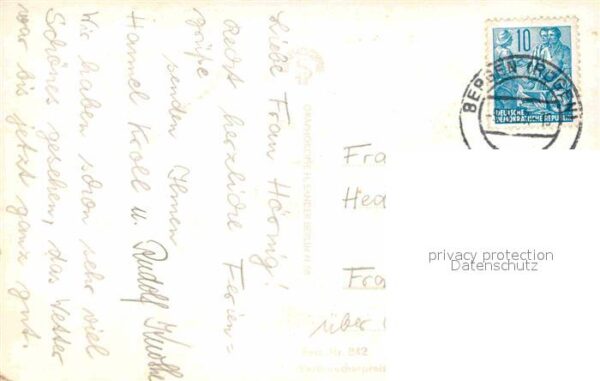 Liebe Frau Hörnig!
Recht herzliche Ferien=
grüße
senden Ihnen
Hannel Kroll u. Rudolf
Wir haben schon sehr viel
Schönes gesehen, das Wetter
war bis jetzt ganz gut.
10
DEUTSCHE
DEMOKRATISCHE REPUBLIK
BERGEN (RÜGEN)
Fra
Hea
Fra
über
privacy protection
Datenschutz